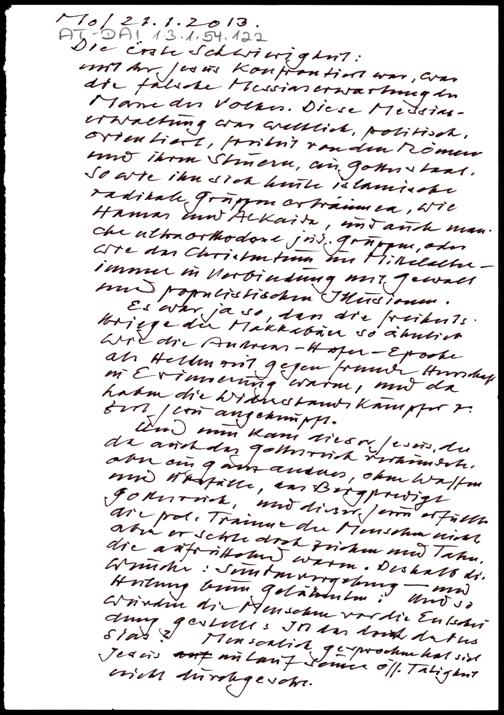 Mo/21.1.2013.
AT-DA! 13.1.54.122
Die erste Schwierigkeit:
mit der Jesus konfrontiert war, war
die falsche Messiaserwartung der
Masse des Volkes. Diese Messias-
erwartung war weltlich, politisch
orientiert, Freiheit von den Römern
und ihren Steuern, ein Gottesstaat.
So wie ihn sich heute islamische
radikale Gruppen erträumen, wie
Hamas und AlKaida, und auch man-
che ultraorthodoxe jüd. Gruppen, oder
wie das Christentum im Mittelalter –
immer in Verbindung mit Gewalt
und populistischen Illusionen.
Es war ja so, dass die Freiheits-
kriege der Makkabäer so ähnlich
wie die Andreas-Hofer-Epoche
als Heldenzeit gegen fremde Herrschaft
in Erinnerung waren, und da
haben die Widerstandskämpfer z.
Zeit Jesu angeknüpft.
Und nun kam dieser Jesus, der
da auch das Gottesreich verkündete,
aber ein ganz anderes, ohne Waffen
und Überfälle, das Bergpredigt
Gottesreich, und dieser Jesus erfüllte
die pol. Träume der Menschen nicht
aber er setzte doch Zeichen und Taten,
die aufrüttelnd waren. Deshalb die
Wunder: Sündenvergebung – und
Heilung beim Gelähmten. Und so
wurden die Menschen vor die Entschei-
dung gestellt: Ist das doch der Mes
sias? Menschlich gesprochen hat sich
Jesus am Anlauf seiner öff. Tätigkeit
nicht durchgesetzt.